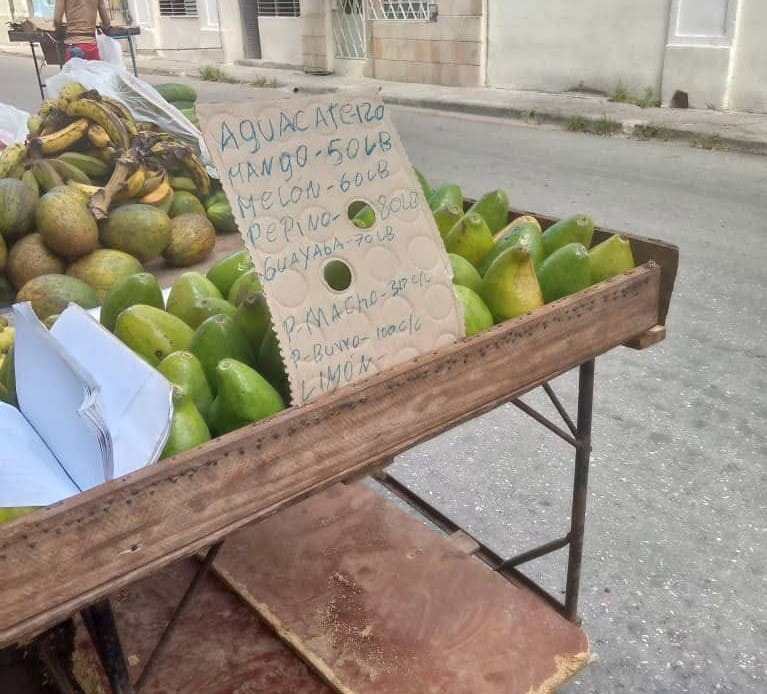 AGUACATE 120
MANGO - 50 LB
MELON - 60 LB
PEPINO - 80 LB
GUAYABA - 70 LB
P-MACHO - 30 C/U
P-BURRO - 100 C/C
LIMON -